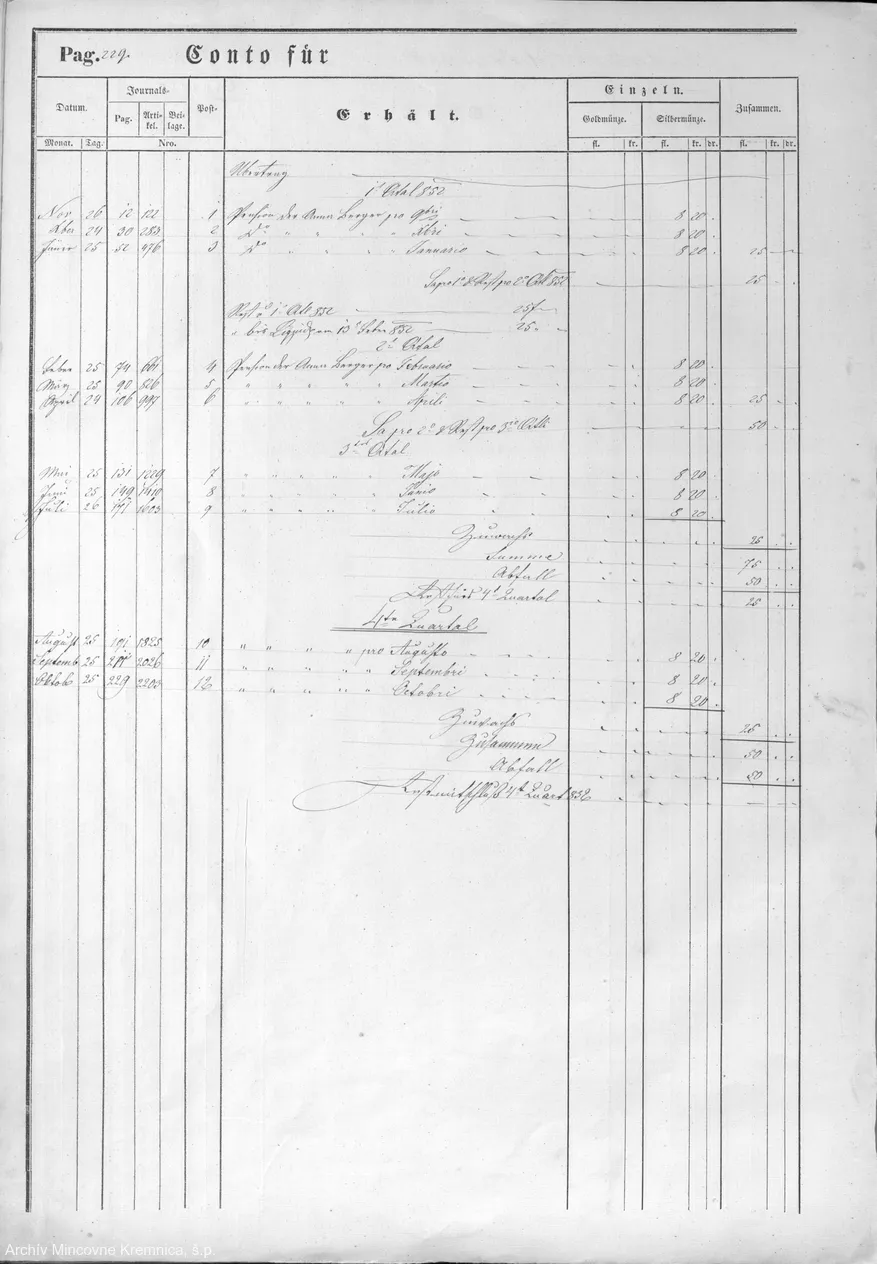 Pag. 229. Conto für
Datum. Journals- Post- Erhält. Einzeln. Zusammen.
Pag. Arti-kel. Bei-lage. Goldmünze. Silbermünze.
Monat. Tag. Nro. fl. kr. fl. kr. dr. fl. kr. dr.
Übertrag
1t Qrtal 852
Nov. 26 12 122 1 Pension der Anna Berger pro 9bri 8 20
Xber 24 30 283 2 do " " " " Xbri 8 20
Jäner 25 52 476 3 do " " " " Januario 8 20 25
25
Rest 1t 852 25f
25
2t Qrtal
Feber 25 74 661 4 Pension der Anna Berger pro Februario 8 20
März 25 90 826 5 " " " " " Martio 8 20
April 24 106 997 6 " " " " " Aprili 8 20 25
Sa pro 2o & Rest pro 3io 50
3tes Qrtal
Mai 25 131 1229 7 " " " " " Majo 8 20
Juni 25 149 1410 8 " " " " " Junio 8 20
Juli 26 171 1603 9 " " " " " Julio 8 20
Zuwachs 25
Summa 75
Abfall 50
Rest 4t Quartal 25
4te Quartal
August 25 191 1825 10 " " " " pro Augusto 8 20
Septemb 25 211 2026 11 " " " " " Septembri 8 20
Oktob 25 229 2203 12 " " " " " Octobri 8 20
Zuwachs 25
Zusammen 50
Abfall 50
Rest mit Schluß 4t Quart 852
Archív Mincovne Kremnica, š.p.